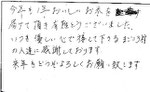 今年も1年おいしいお米を
届けて頂き有難とうございました。
いつも優しい心で接して下さるまつえ様
の人達に感謝しております。
来年もどうかよろしくお願い致します